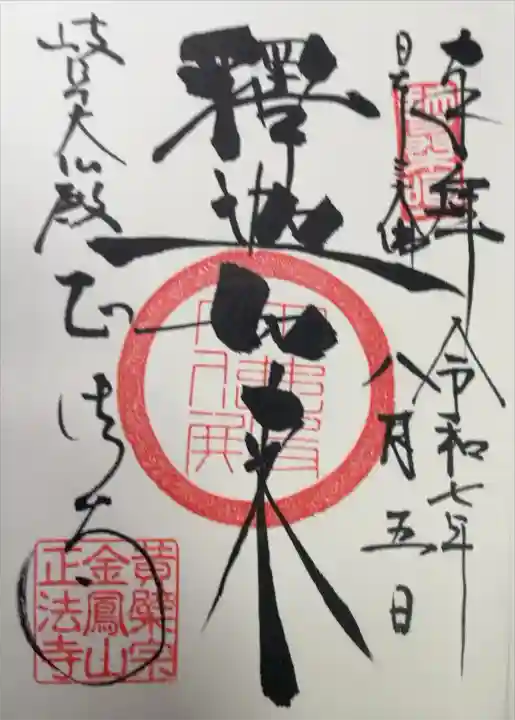 奉拝
令和七年
八月五日
日本三大佛
釋迦如来
岐阜大仏殿
正法寺
黄檗宗
金鳳山
正法寺